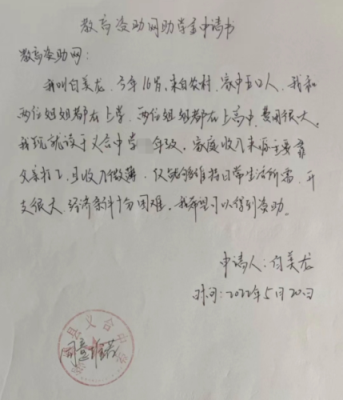 教育资助网助学金申请书
教育资助网：
我叫白美龙，今年16岁，来自农村，家中五口人，我和
两位姐姐都在上学，两位姐姐都在上高中，费用很大。
我现就读于义合中学 年级，家庭收入来源主要靠
父亲打工，且收入微薄，仅能够维持日常生活所需，开
支很大，经济条件十分困难，我希望可以得到资助。
申请人：白美龙
时间：2022年5月20日
县义合中学
同意推荐